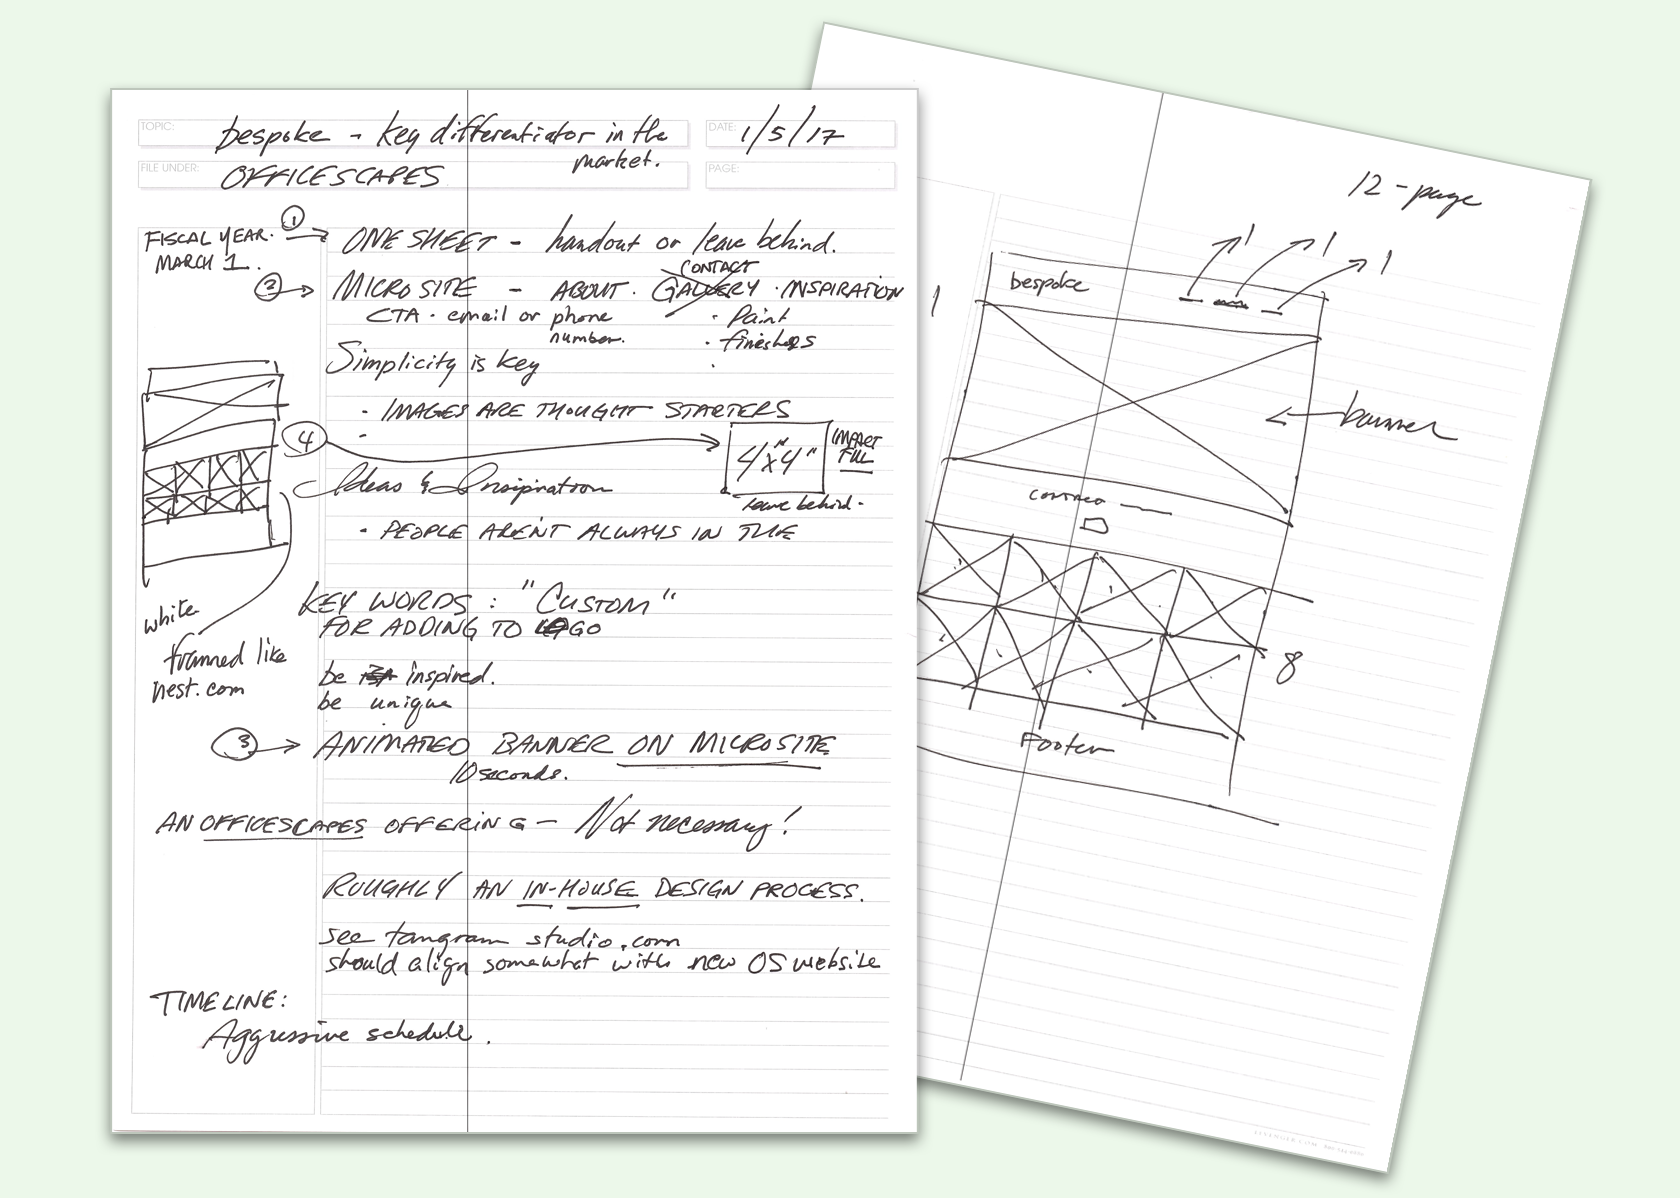 TOPIC: bespoke - key differentiator in the market.
DATE: 1/5/17
FILE UNDER: OFFICESCAPES
PAGE:
FISCAL YEAR.
MARCH 1.
1 → ONE SHEET - handout or leave behind.
CONTACT
2 → MICROSITE - ABOUT · GALLERY · INSPIRATION
CTA · email or phone
number.
· Paint
· finishes
·
Simplicity is key
· IMAGES ARE THOUGHT STARTERS
-
4
4"x4"
IMPACT
leave behind.
Ideas & Inspiration
· PEOPLE AREN'T ALWAYS IN THE
KEY WORDS: "CUSTOM"
FOR ADDING TO LOGO
white
framed like
nest.com
be inspired.
be unique
3 → ANIMATED BANNER ON MICROSITE
10 seconds.
AN OFFICESCAPES OFFERING - Not necessary!
ROUGHLY AN IN-HOUSE DESIGN PROCESS.
see tangram studio.com
should align somewhat with new OS website
TIMELINE:
Aggressive schedule.
12-page
1 1 1
bespoke
1
banner
8
Footer